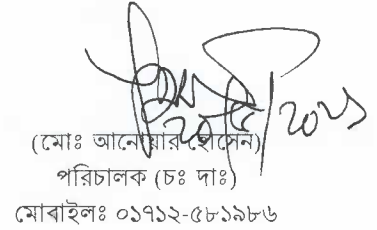 (মোঃ আনোয়ার হোসেন)
পরিচালক (চঃ দাঃ)
মোবাইলঃ ০১৭১২-৫৮১৯৮৬